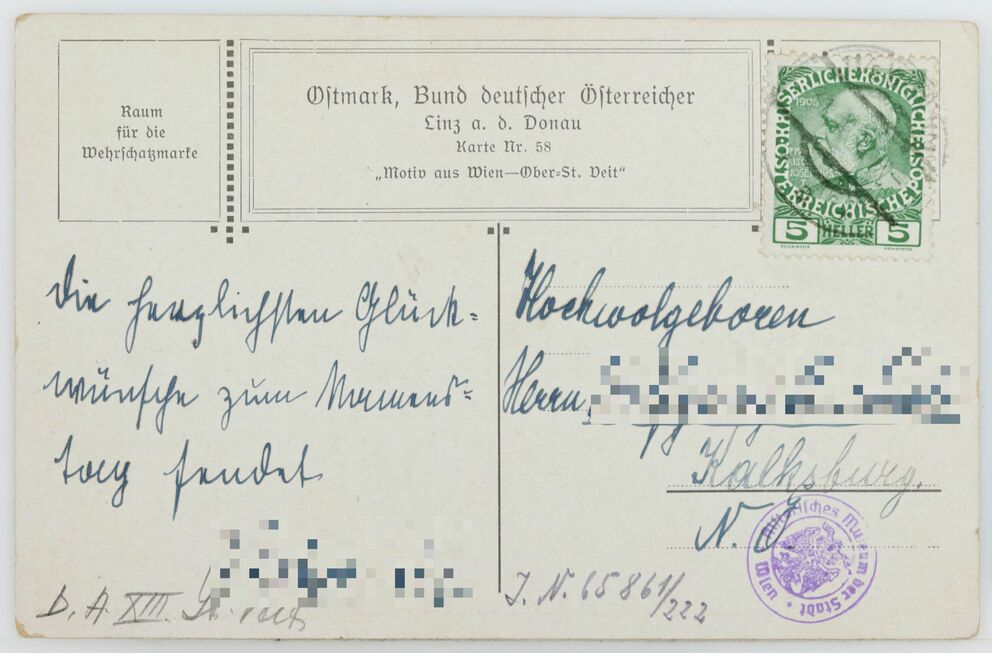 Raum
für die
Wehrschatzmarke
Ostmark, Bund deutscher Österreicher
Linz a. d. Donau
Karte Nr. 58
„Motiv aus Wien—Ober-St. Veit“
KAISERLICHE KÖNIGLICHE
ÖSTERREICHISCHE POST
1908
5 HELLER 5
Die herzlichsten Glück-
wünsche zum Namens-
tag sendet
Hochwolgeboren
Herrn
Kalksburg.
N. Ö.
Historisches Museum der Stadt Wien
D. A. XIII.
I. N. 65861/222